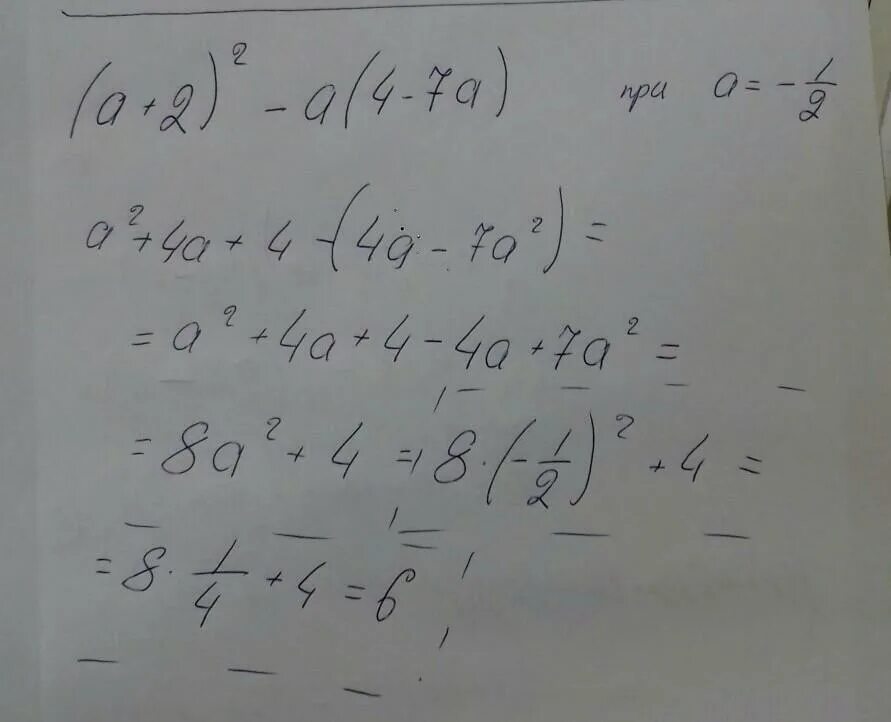 (a+2)² - a(4-7a) при a = -1/2
a² + 4a + 4 - (4a - 7a²) =
= a² + 4a + 4 - 4a + 7a² =
= 8a² + 4 = 8·(-1/2)² + 4 =
= 8·1/4 + 4 = 6